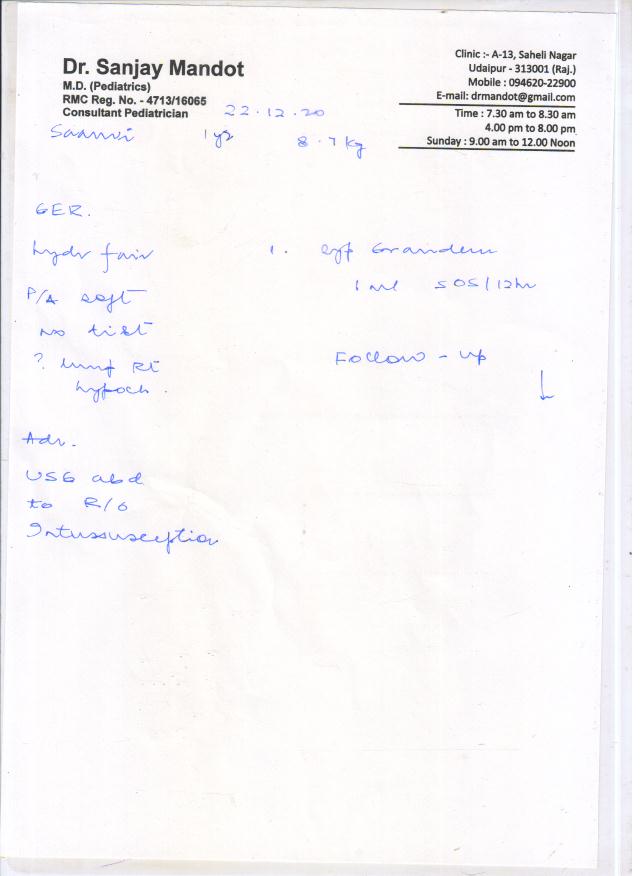 Dr. Sanjay Mandot
M.D. (Pediatrics)
RMC Reg. No. - 4713/16065
Consultant Pediatrician
Clinic :- A-13, Saheli Nagar
Udaipur - 313001 (Raj.)
Mobile : 094620-22900
E-mail: drmandot@gmail.com
Time : 7.30 am to 8.30 am
4.00 pm to 8.00 pm
Sunday : 9.00 am to 12.00 Noon
22.12.20
Saanvi 1 yr 8.7 kg
GER.
hydr fair
P/A soft
no dist
? lump Rt
hypoch.
Adv.
USG abd
to R/O
Intussusception
1. syp Grandem
1 ml SOS/12hr
Follow-up